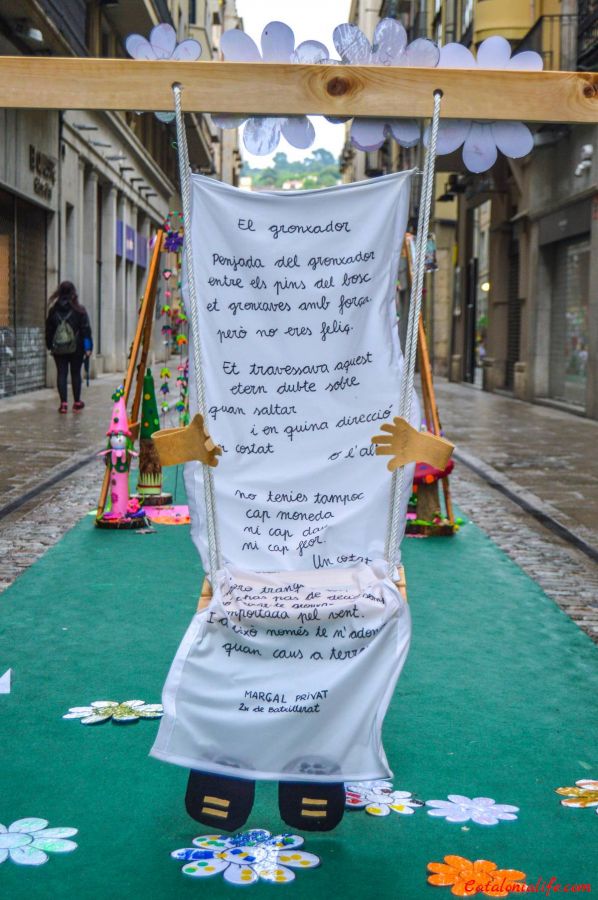 El gronxador
Penjada del gronxador
entre els pins del bosc
et gronxaves amb força
però no eres feliç.
Et travessava aquest
etern dubte sobre
quan saltar
i en quina direcció
costat o l'al
no tenies tampoc
cap moneda
ni cap
ni cap flor.
Un costat
has pas de
importada pel vent.
I això només te n'adon
quan caus a terra
MARÇAL PRIVAT
2n de Batxillerat
Catalonialife.com